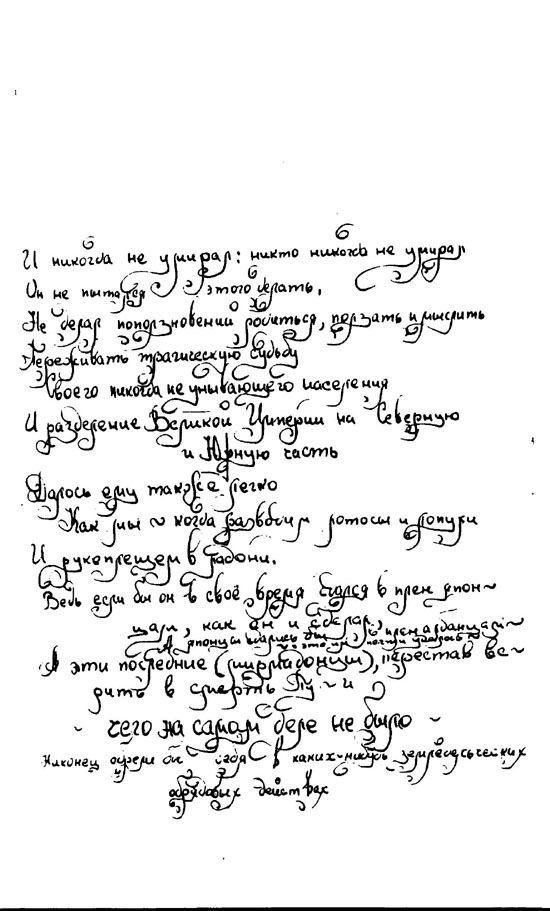 И никогда не умирал: никто никогда не умирал
Он не пытался этого делать,
Не делал поползновений родиться, ползать и мыслить
Переживать трагическую судьбу
Своего никогда не унывающего населения
И разделение Великой Империи на Северную
и Южную часть
Далось ему также легко
Как мы ~ когда разводим лотосы и лопухи
И рукоплещем в ладони.
Ведь если бы он в своё время сдался в плен япон~
цам, как он и сделал,
А японцы сдались бы в плен албанцам
А эти последние (мирмидонцы), перестав ве~
рить в смерть Пу ~ и
~ чего на самом деле не было ~
Наконец обрели бы себя в каких-нибудь земледельческих
обрядовых действах